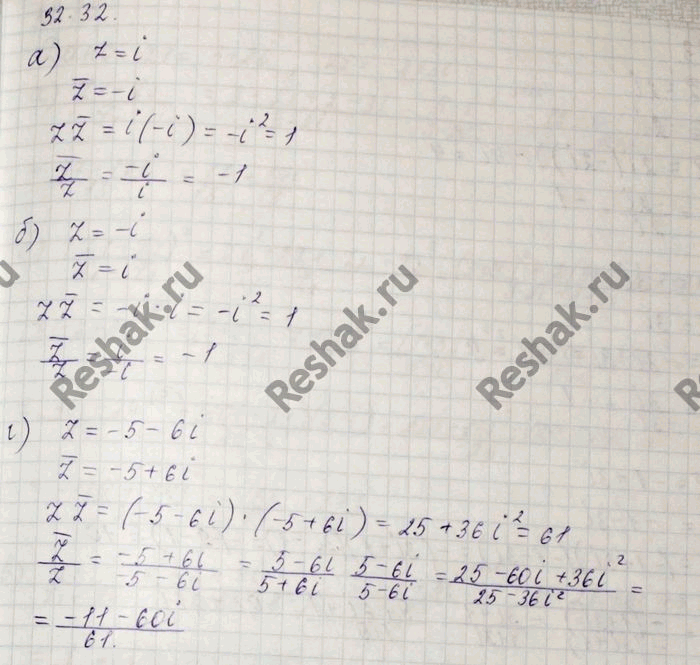 32.32.
а) z = i
z̅ = -i
z z̅ = i(-i) = -i² = 1
z̅/z = -i/i = -1
б) z = -i
z̅ = i
z z̅ = -i · i = -i² = 1
z̅/z = i/-i = -1
г) z = -5 - 6i
z̅ = -5 + 6i
z z̅ = (-5 - 6i) · (-5 + 6i) = 25 + 36i² = 61
z̅/z = -5 + 6i/-5 - 6i = 5 - 6i/5 + 6i 5 - 6i/5 - 6i = 25 - 60i + 36i²/25 - 36i² =
= -11 - 60i/61.
Reshak.ru
Reshak.ru
Reshak.ru